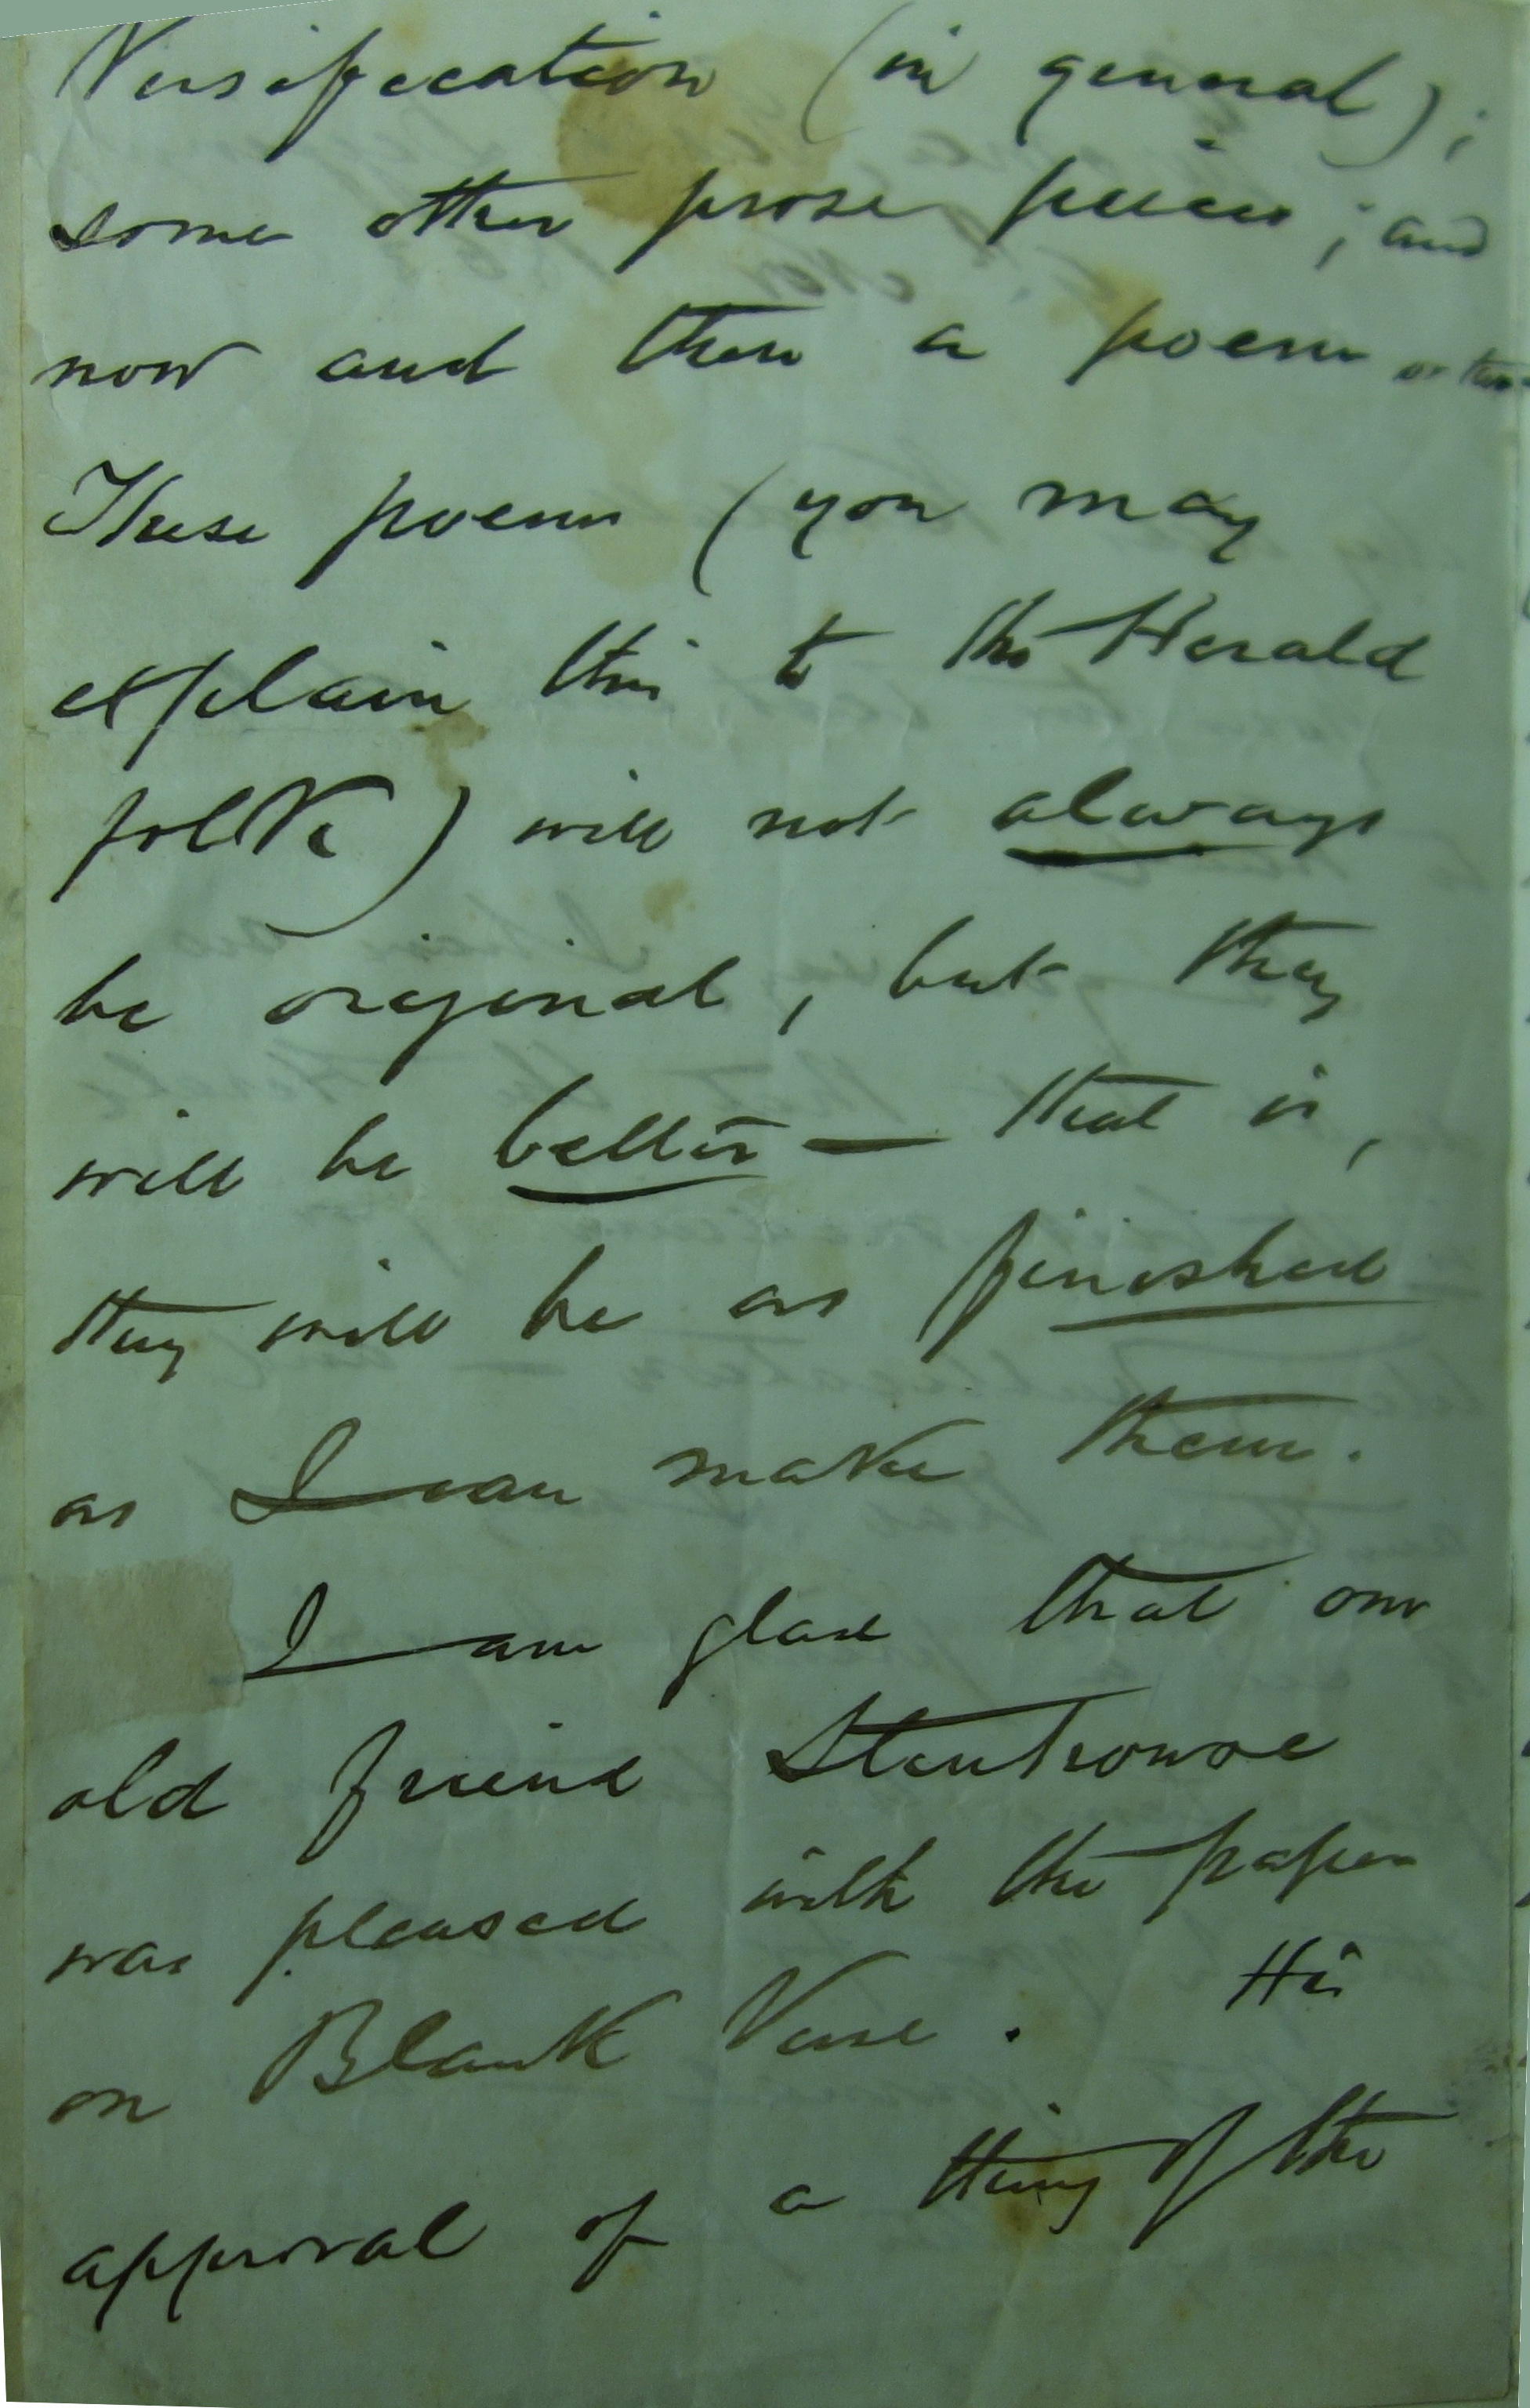 Versification (in general);
some other prose pieces; and
now and then a poem or two.
These poems (you may
explain this to the Herald
folk) will not always
be original, but they
will be better — that is,
they will be as finished
as I can make them.
I am glad that our
old friend Stenhouse
was pleased with the paper
on Blank Verse. His
approval of a thing of the